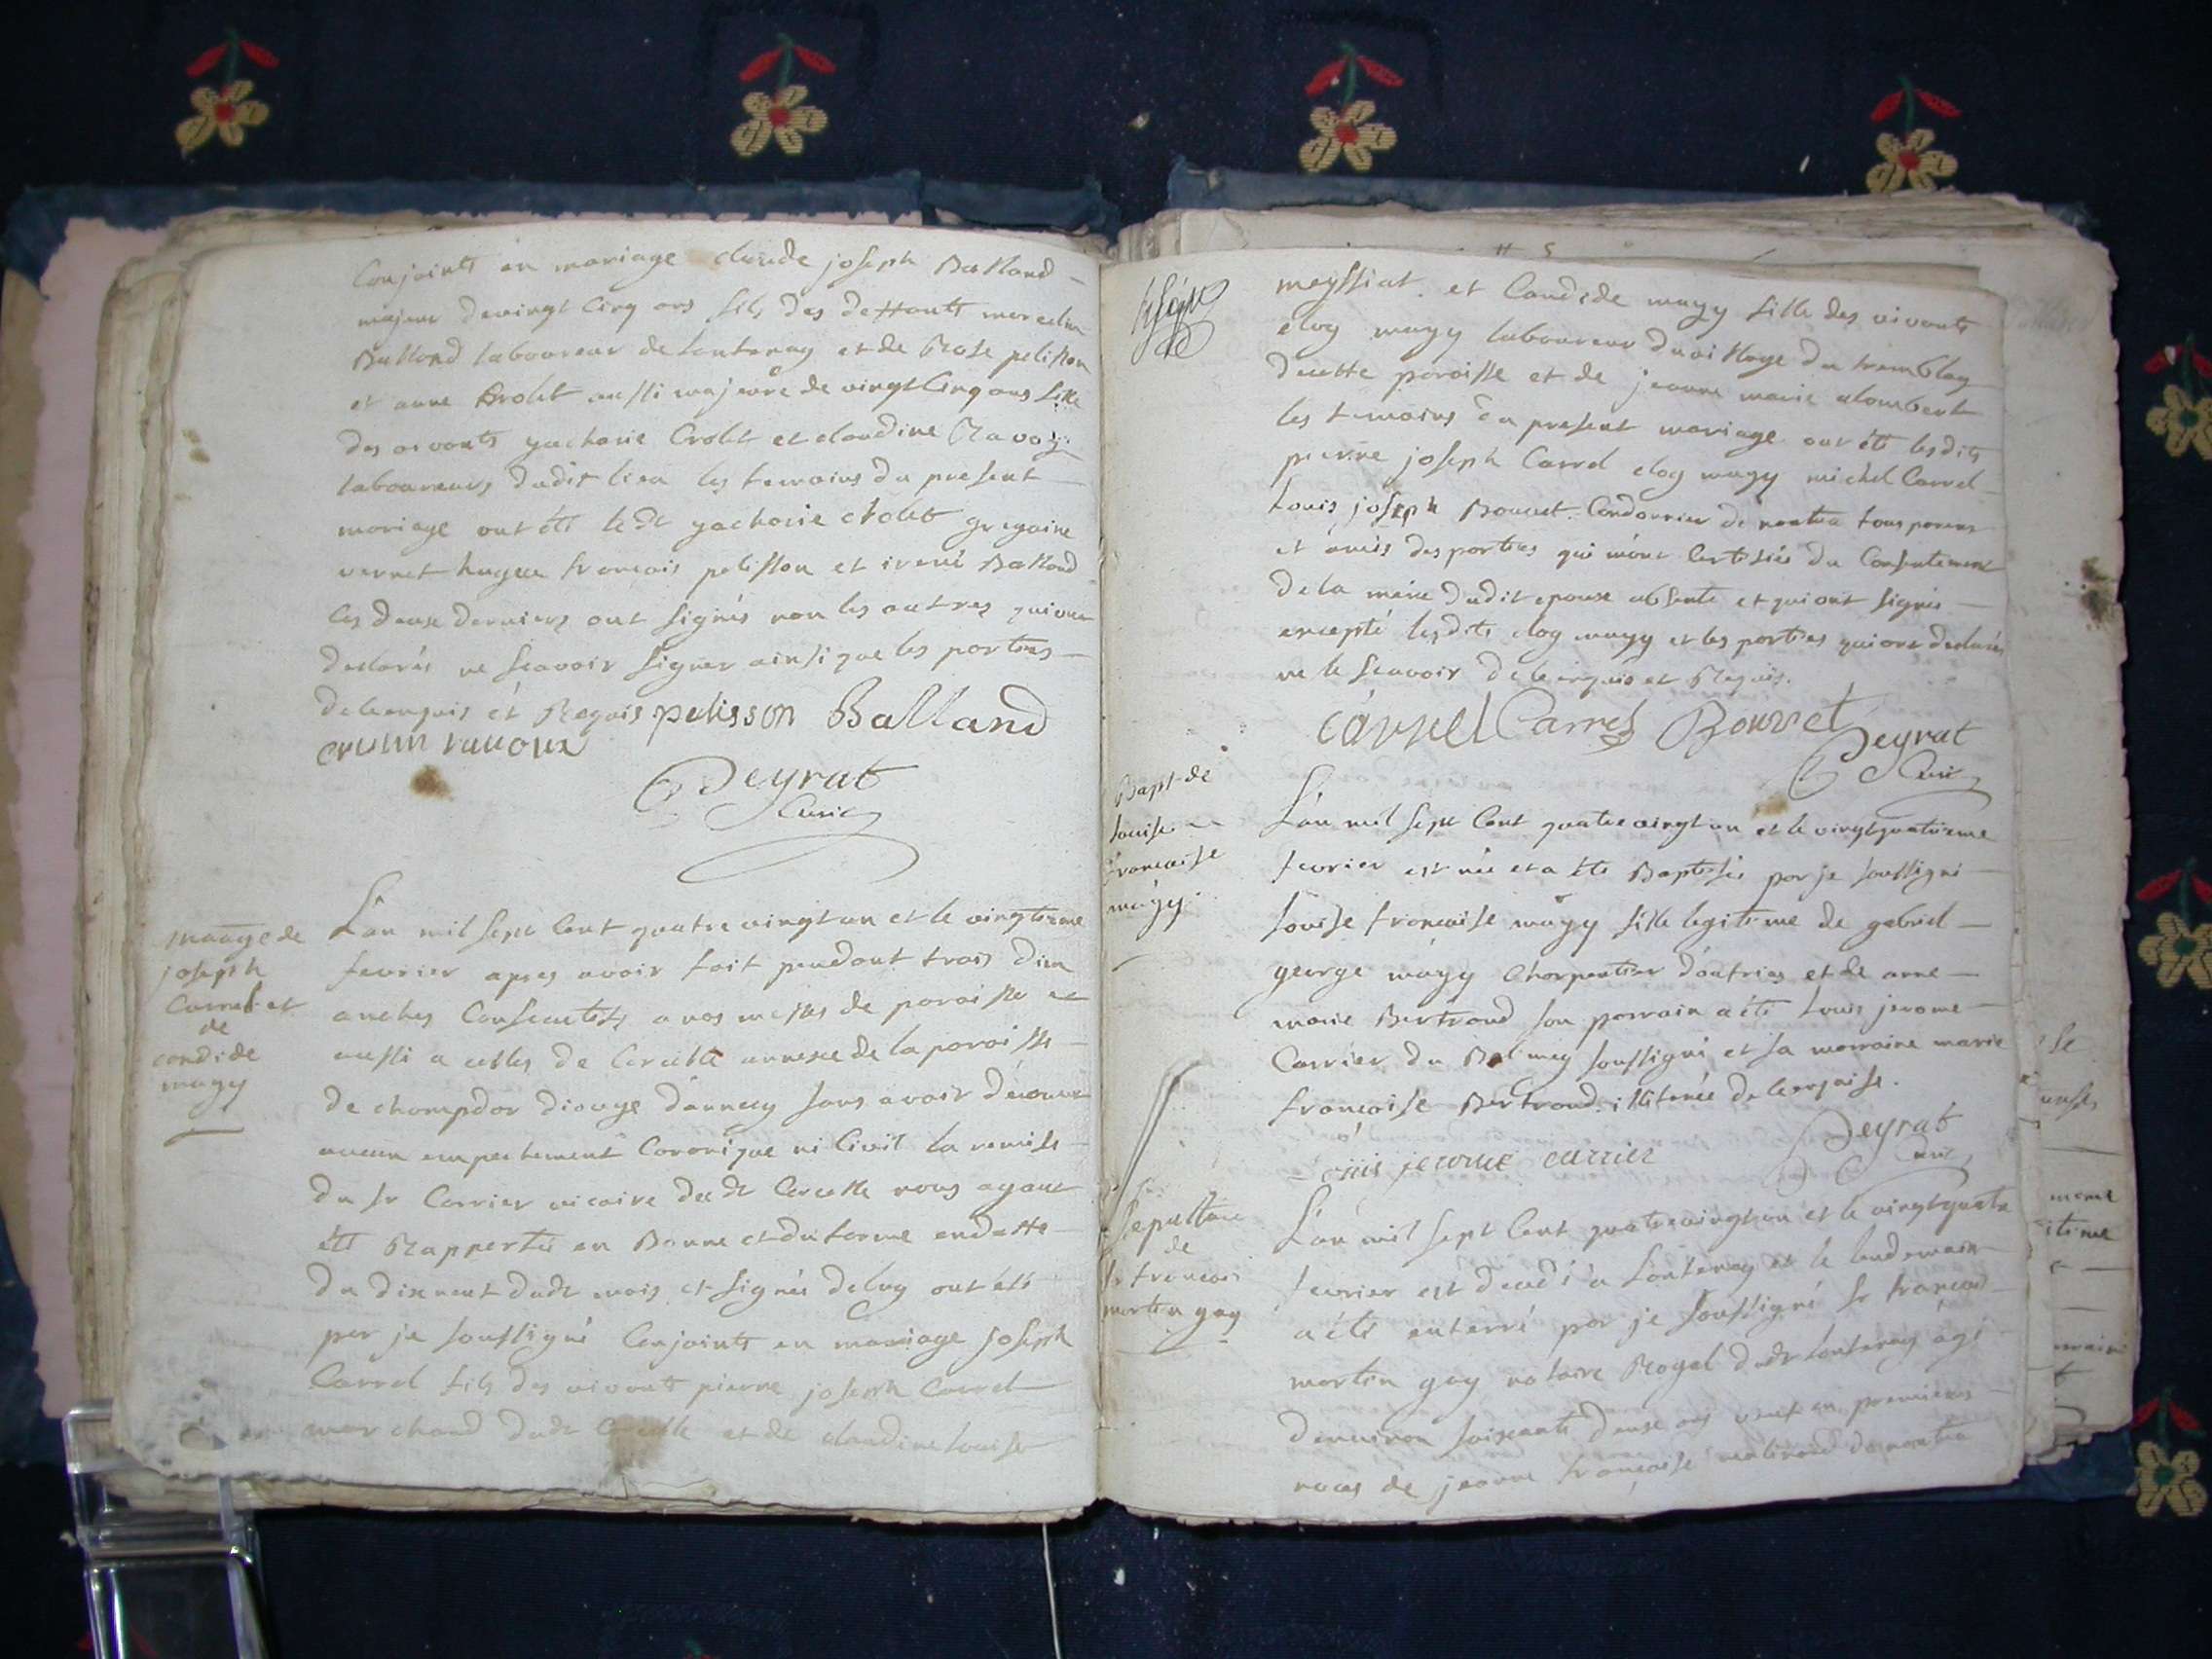 Conjoints en mariage claude joseph Balland
majeur de vingt cinq ans fils des deffunts marcelin
Balland laboureur de Lantenay et de Rose pelisson
et anne Crolet aussi majeure de vingt cinq ans fille
des vivants zacharie Crolet et claudine Ravoz
laboureurs dudit lieu les temoins du present
mariage ont été ledt zacharie crolet gregoire
vernet hugue francois pelisson et irené Balland
les deux derniers ont signés non les autres qui ont
declarés ne scavoir signer ainsi que les parties
de ce enquis et Requis pelisson Balland
Peyrat
Curé
mariage de
joseph
Carrel et
de
candide
magy
L'an mil sept cent quatre vingt un et le vingtieme
fevrier apres avoir fait pendant trois dim
anches Consecutifs a nos messes de paroisse et
aussi a celles de Corcelle annexe de la paroisse
de champdor diocese d'annecy sans avoir découvert
aucun empechement Canonique ni Civil la remise
du sr Carrier vicaire dudt Corcelle nous ayant
été Rapportée en Bonne et due forme en datte
du dix neuf dudt mois et signée deluy ont été
par je soussigné Conjoints en mariage joseph
Carrel fils des vivants pierre joseph Carrel
marchand dudt Corcelle et de claudine louise
meyssiat et Candide magy fille des vivants
eloy magy laboureur du village du tremblay
de cette paroisse et de jeanne marie alombert
les temoins du present mariage ont été lesdits
pierre joseph Carrel eloy magy michel Carrel
Louis joseph Bouvet Cordonnier de nantua tous parens
et amis des parties qui m'ont certifiés du Consentement
de la mere dudit epoux absente et qui ont signés
excepté lesdits eloy magy et les parties qui ont declarés
ne le scavoir de ce enquis et Requis.
carrel Carrel Bouvet
Peyrat
Curé
Bapt de
louise
francoise
magy
L'an mil sept cent quatre vingt un et le vingt quatrieme
fevrier est née et a été Baptisée par je soussigné
louise francoise magy fille legitime de gabriel
george magy Charpentier d'outriaz et de anne
marie Bertrand son parrain a été louis jerome
Carrier du Balmey soussigné et sa marraine marie
francoise Bertrand illiterée de ce enquise.
Louis jerome carrier
Peyrat
Curé
Sepulture
de
sr francois
martin gay
L'an mil sept cent quatre vingt un et le vingt quatre
fevrier est decedé a Lantenay et le lendemain
a été enterré par je soussigné sr francois
martin gay notaire Royal dudt Lantenay agé
d'environ soixante douze ans veuf en premieres
noces de jeanne francoise de nantua